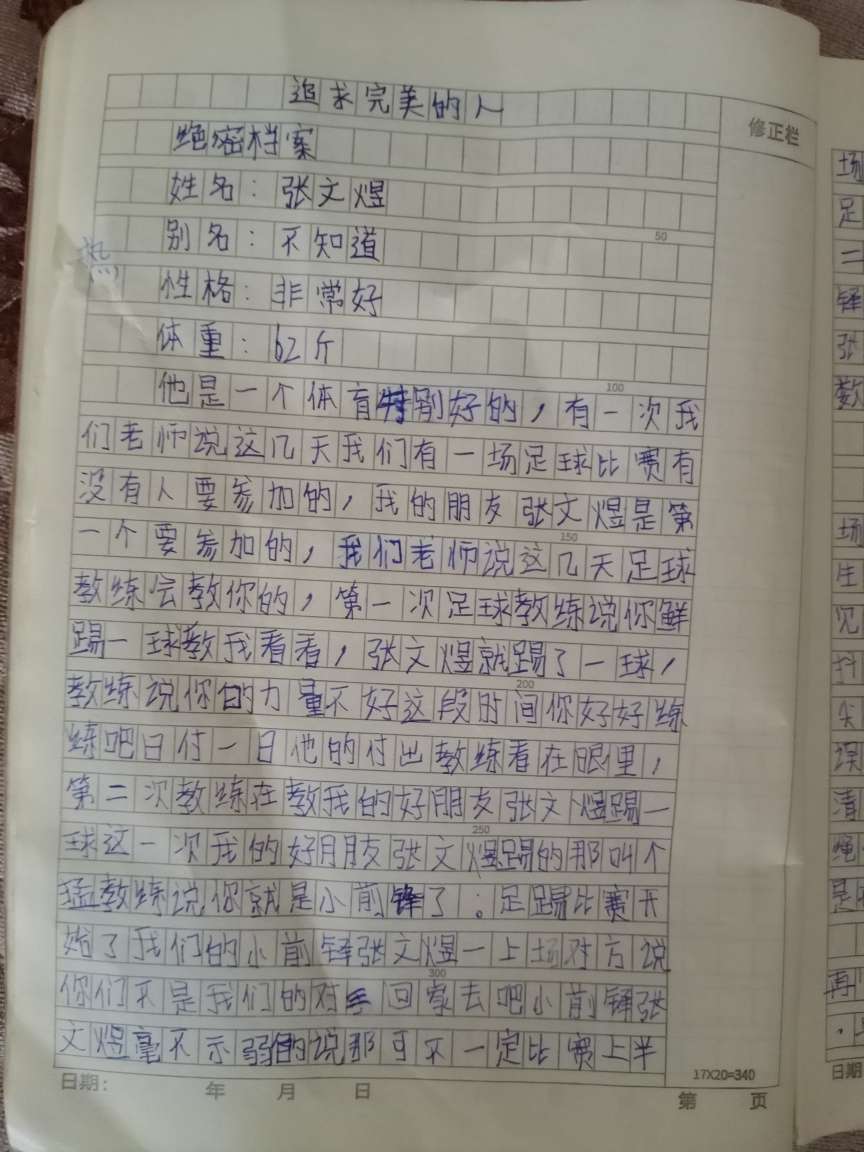 追求完美的人
修正栏
绝密档案
姓名：张文煜
别名：不知道
50
热
性格：非常好
体重：62斤
100
他是一个体育特别好的，有一次我
们老师说这几天我们有一场足球比赛有
没有人要参加的，我的朋友张文煜是第
150
一个要参加的，我们老师说这几天足球
教练会教你的，第一次足球教练说你鲜
踢一球教我看看，张文煜就踢了一球，
200
教练说你的力量不好这段时间你好好练
练吧日付一日他的付出教练看在眼里，
第二次教练在教我的好朋友张文煜踢一
250
球这一次我的好月月友张文煜踢的那叫个
猛教练说你就是小前锋了。足踢比赛开
始了我们的小前锋张文煜一上场对方说
300
你们不是我们的对手回家去吧小前锋张
文煜毫不示弱的说那可不一定比赛上半
17X20=340
日期： 年 月 日
第 页
场
足
二
锋
张
数
场
生
见
抖
尖
误
清
绳
是
再
日期